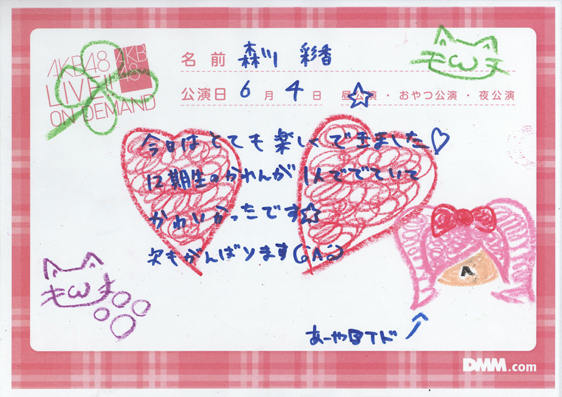 AKB48
LIVE!!
ON DEMAND
AKB
48
名前 森川 彩香
公演日 6月4日 昼公演・おやつ公演・夜公演
今日はとても楽しくできました♡
12期生のかれんが1人ででていて
かわいかったです☆
次もがんばります
あーやロイド
DMM.com